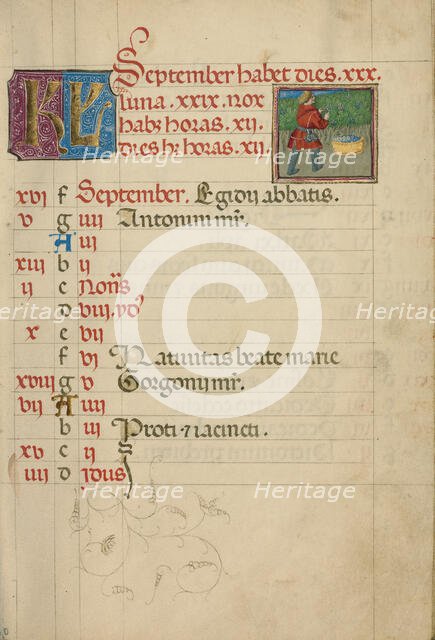 KL September habet dies .xxx.
luna .xxix. nox
habz horas .xii.
dies hz horas .xii.
xvi f September. Egidij abbatis.
v g iiii Antonini mr.
A iii
xiii b ii
ii c Nons
d viii. yds
x e vii
f vi Nativitas beate marie
xviii g v Gorgonij mr.
vii A iiii
b iii Proti et iacincti.
xv c ii
iiii d ydus
Heritage Heritage Heritage
Heritage Heritage
Heritage Heritage Heritage